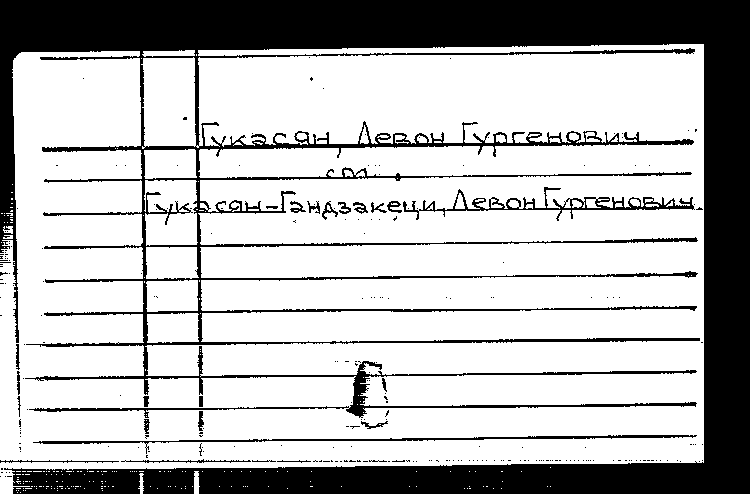 Гукасян, Левон Гургенович
см.
Гукасян-Гандзакеци, Левон Гургенович.